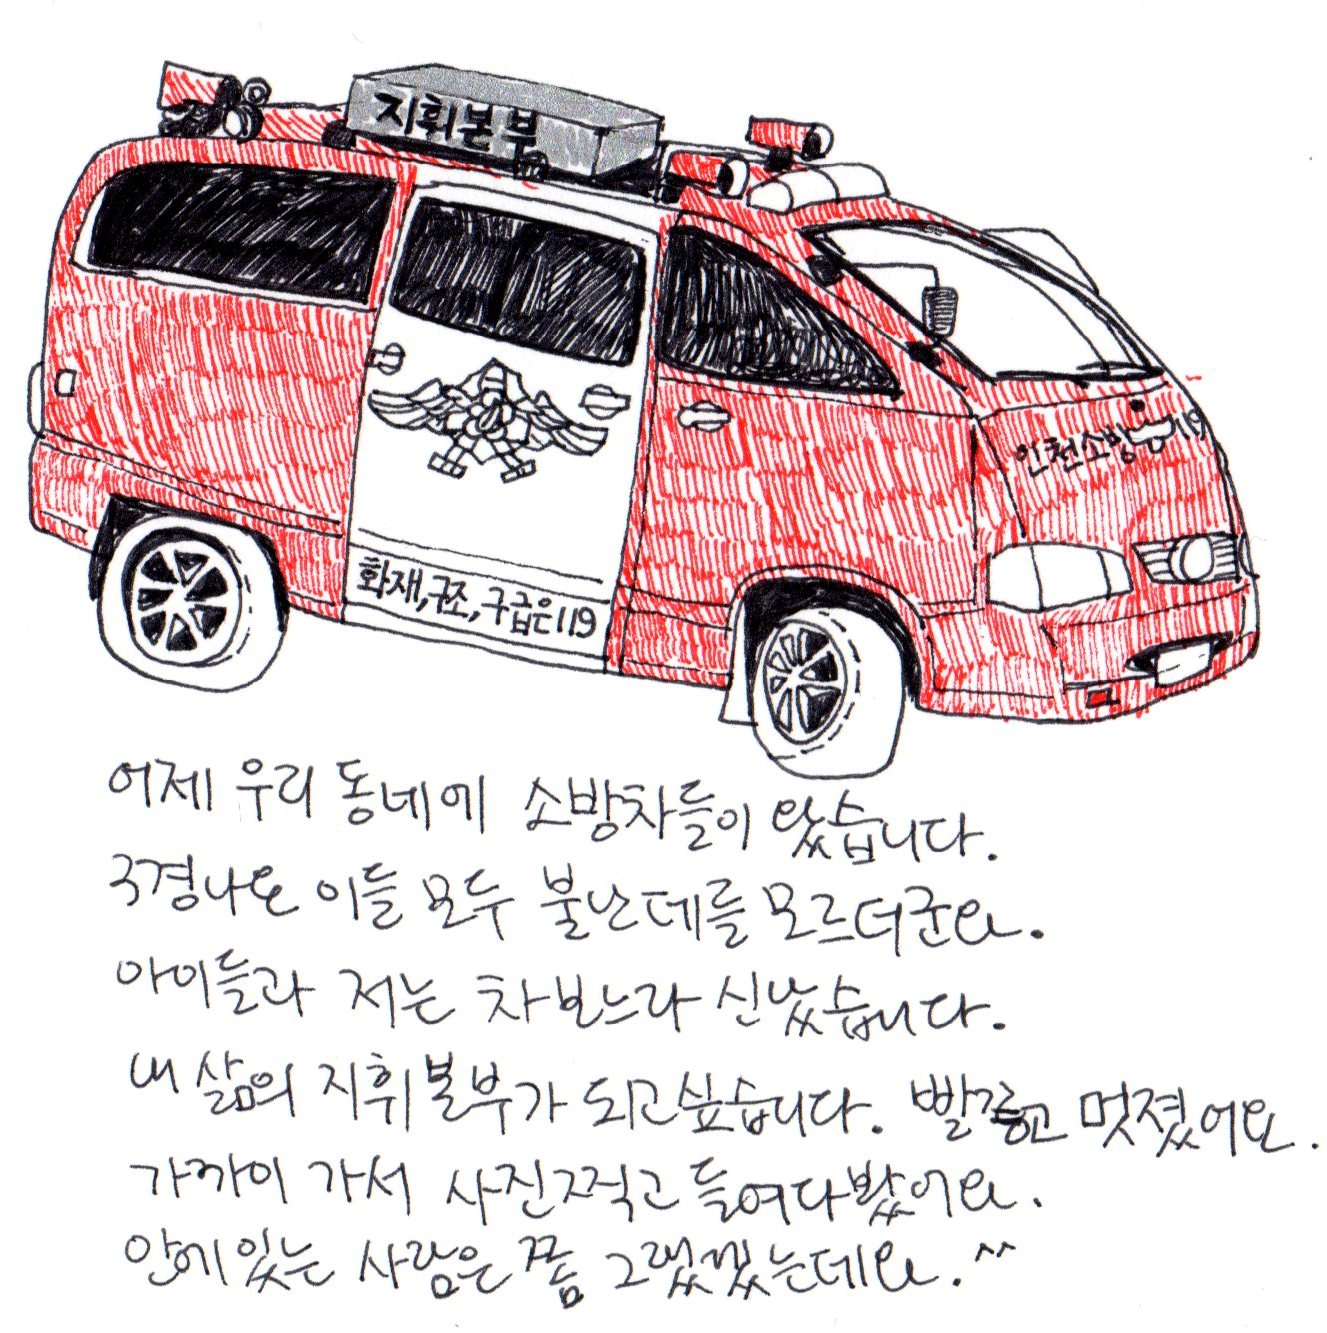 지휘본부
인천소방 119
화재,구조,구급은119
어제 우리 동네에 소방차들이 왔습니다.
구경나온 이들 모두 불난데를 모르더군요.
아이들과 저는 차보느라 신났습니다.
내 삶의 지휘본부가 되고싶습니다. 빨갛고 멋졌어요.
가까이 가서 사진찍고 들여다봤어요.
안에있는 사람은 쫌 그랬겠는데요.^^